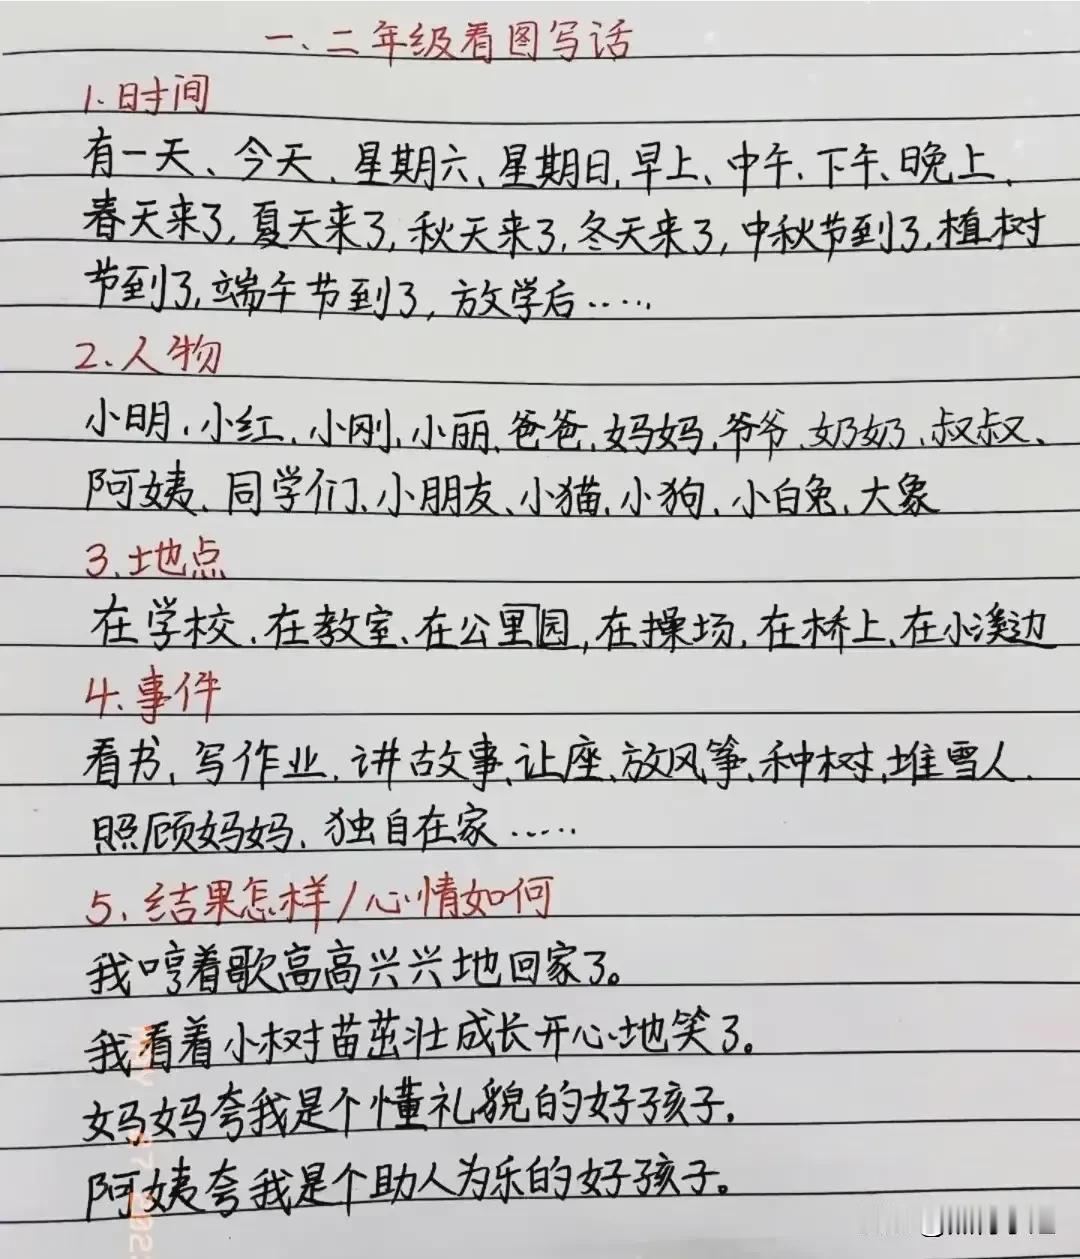 一、二年级看图写话
1.时间
有一天、今天、星期六、星期日、早上、中午、下午、晚上、
春天来了,夏天来了,秋天来了,冬天来了,中秋节到了,植树
节到了,端午节到了,放学后……
2.人物
小明、小红、小刚、小丽、爸爸、妈妈、爷爷、奶奶、叔叔、
阿姨、同学们、小朋友、小猫、小狗、小白兔、大象
3.地点
在学校、在教室、在公里园,在操场、在桥上、在小溪边
4.事件
看书、写作业、讲故事、让座、放风筝、种树、堆雪人、
照顾妈妈、独自在家……
5、结果怎样/心情如何
我哼着歌高高兴兴地回家了。
我看着小树苗茁壮成长开心地笑了。
妈妈夸我是个懂礼貌的好孩子。
阿姨夸我是个助人为乐的好孩子。